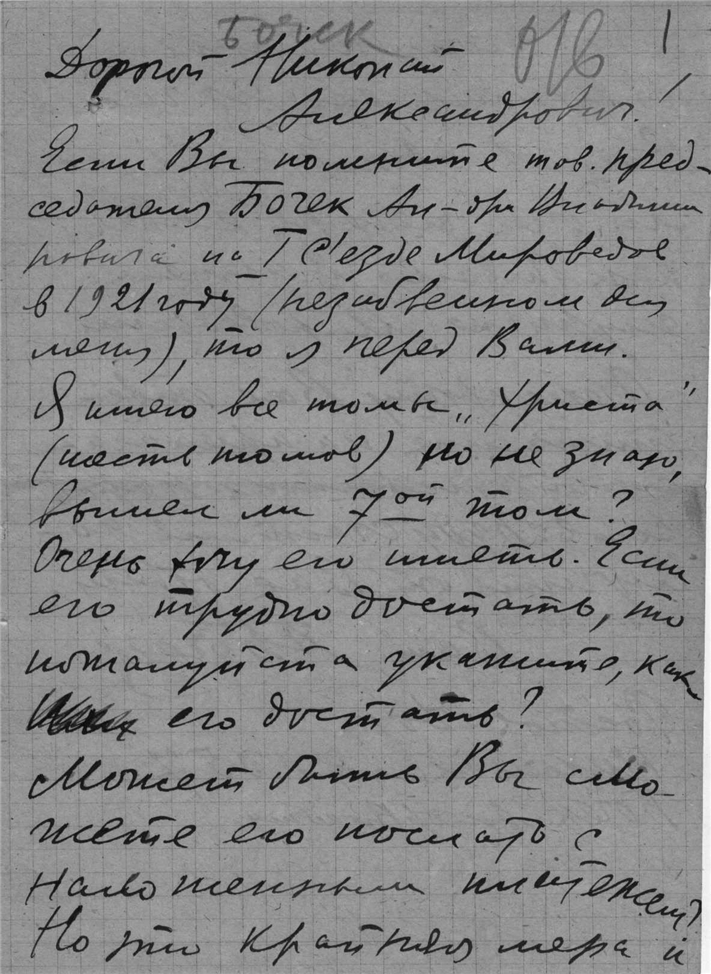 Бочек
1
Дорогой Николай
Александрович!
Если Вы помните тов. пред-
седателя Бочек Ал-дра Владими
ровича на I С'езде Мироведов
в 1921 году (незабвенном для
меня), то я перед Вами.
Я имею все томы „Христа"
(шесть томов) но не знаю,
вышел ли 7ой том?
Очень хочу его иметь. Если
его трудно достать, то
пожалуйста укажите, как
его достать?
Может быть Вы смо-
жете его послать с
наложенным платежем?
Но это крайняя мера и